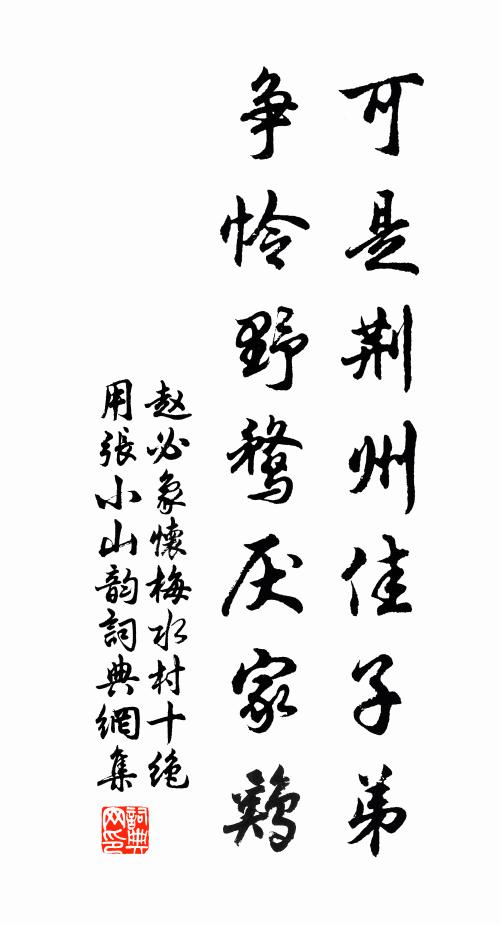 可是荆州佳子弟
争怜野鶩厌家鷄
赵必象懷梅水村十绝
用張小山韵詞典網集
詞典网印